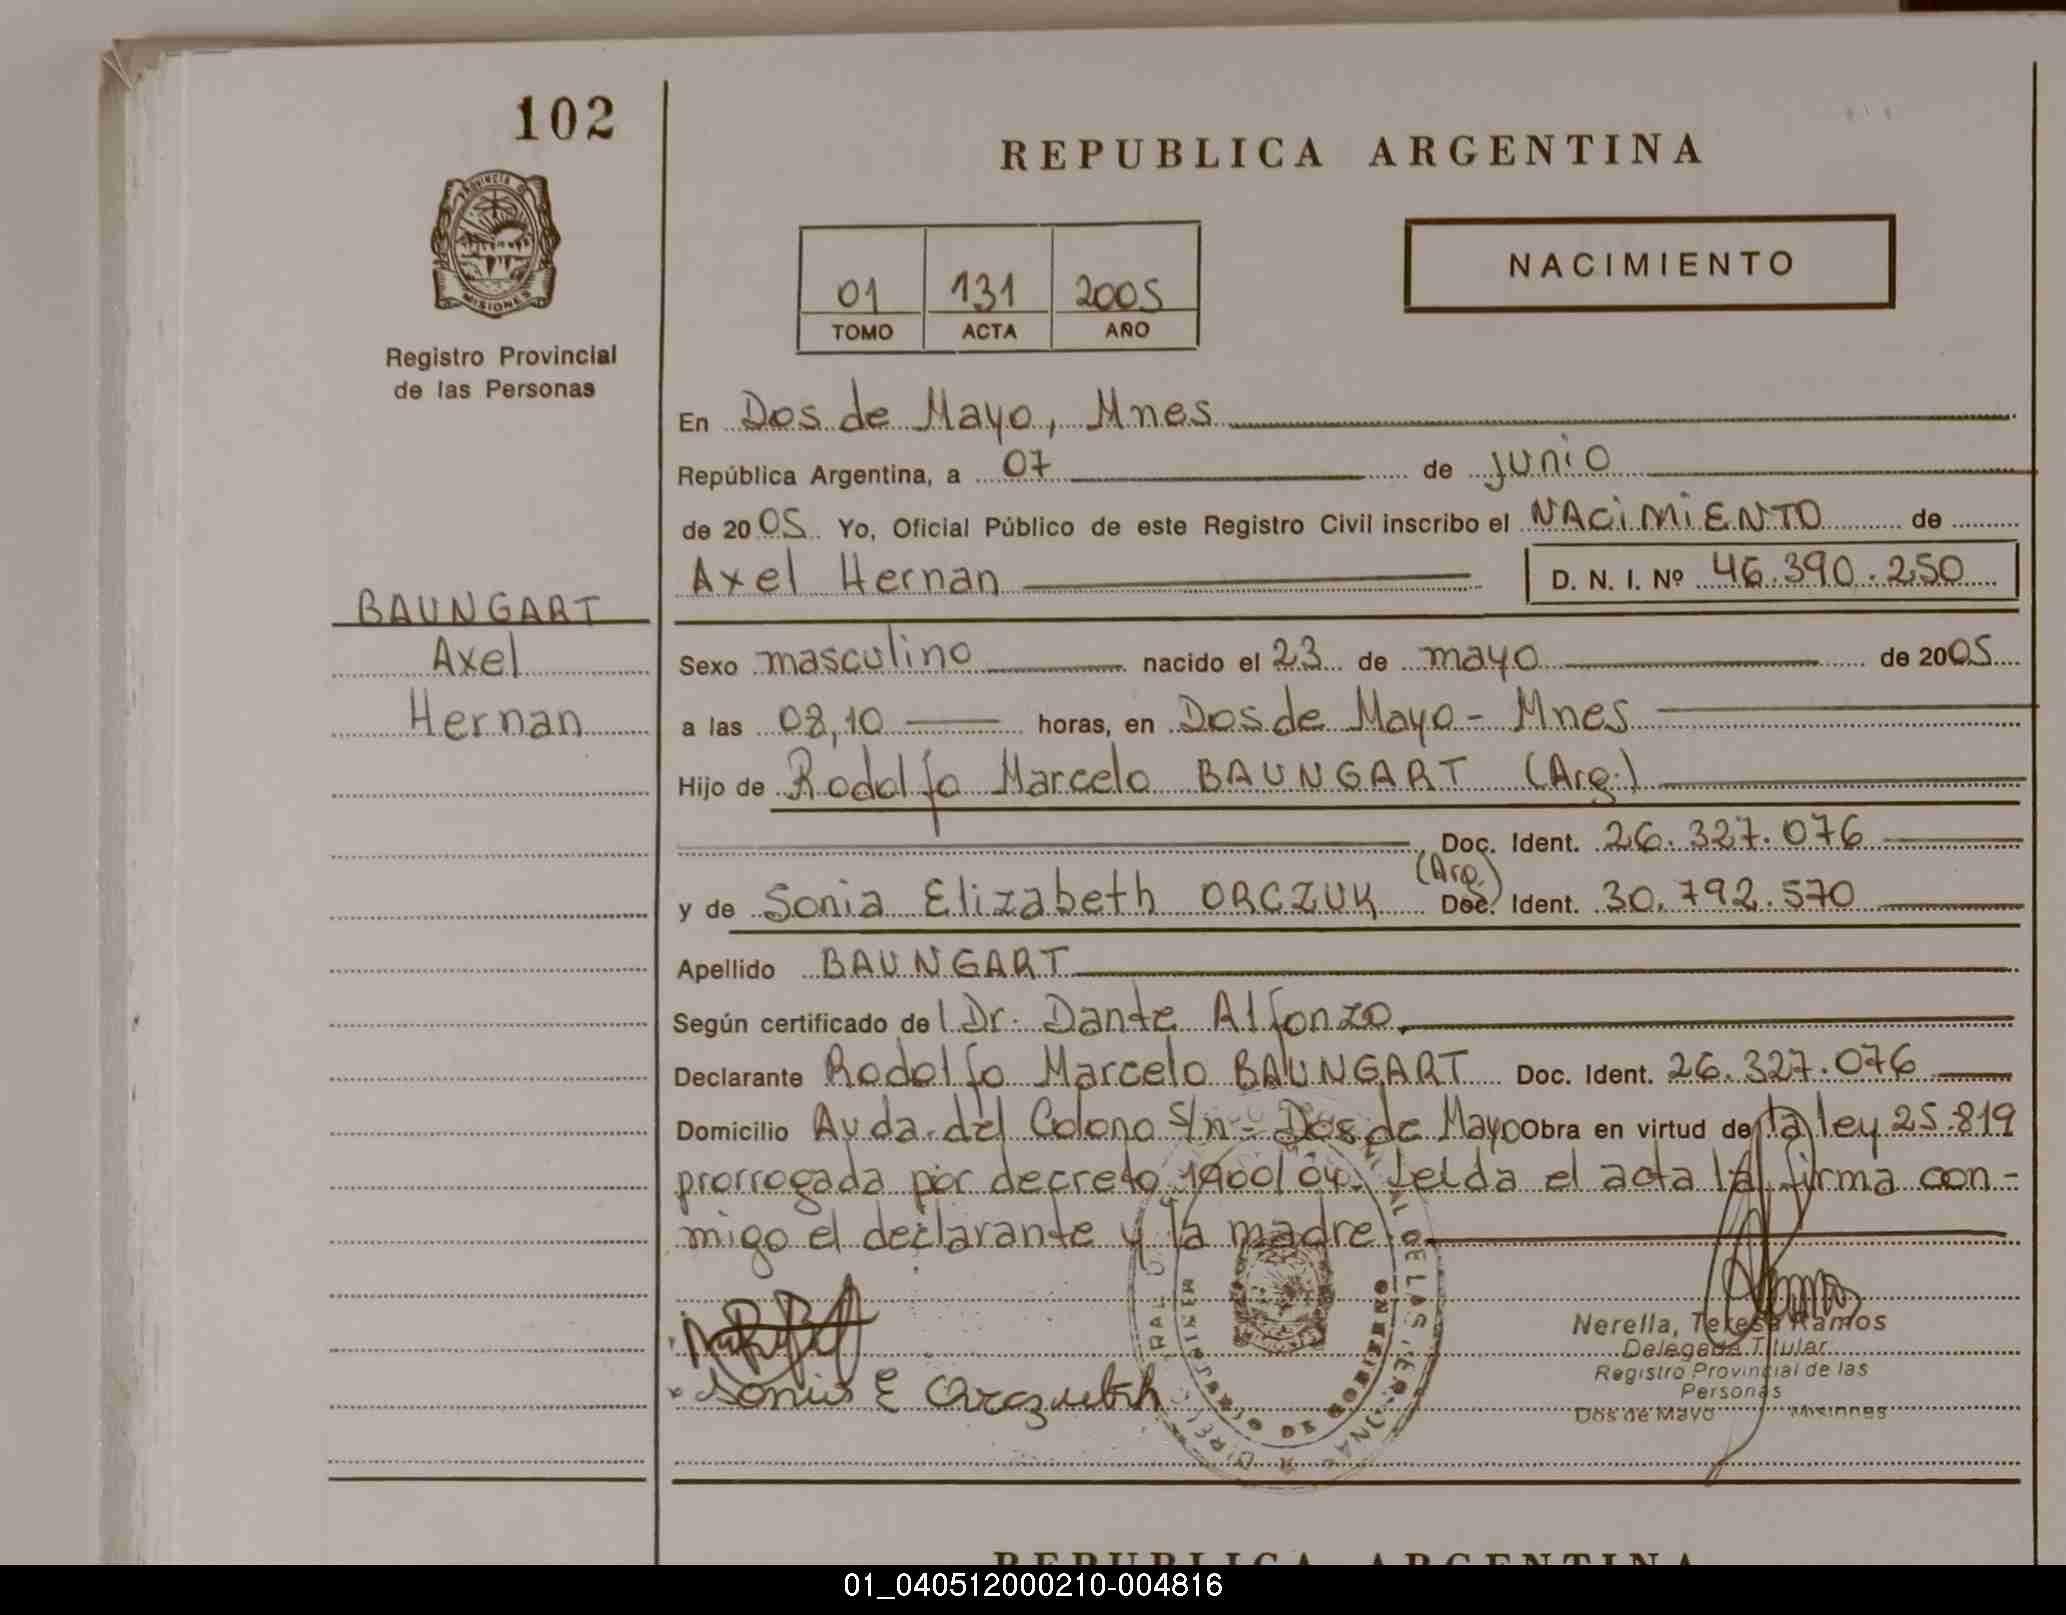 102
REPUBLICA ARGENTINA
PROVINCIA D
MISIONES
Registro Provincial
de las Personas
01 131 2005
TOMO ACTA AÑO
NACIMIENTO
En Dos de Mayo, Mnes
República Argentina, a 07 de junio
de 2005 Yo, Oficial Público de este Registro Civil inscribo el NACIMIENTO de
Axel Hernan D. N. I. Nº 46.390.250
BAUNGART
Axel
Hernan
Sexo masculino nacido el 23 de mayo de 2005
a las 08,10 horas, en Dos de Mayo - Mnes
Hijo de Rodolfo Marcelo BAUNGART (Arg.)
Doc. Ident. 26.327.076
y de Sonia Elizabeth ORCZUK (Arg.) Doc. Ident. 30.792.570
Apellido BAUNGART
Según certificado del Dr. Dante Alfonzo
Declarante Rodolfo Marcelo BAUNGART Doc. Ident. 26.327.076
Domicilio Avda. del Colono S/n - Dos de Mayo Obra en virtud de la ley 25.819
prorrogada por decreto 1900/04. Leída el acta la firma con-
migo el declarante y la madre
Sonia E
Nerella, Teresa Ramos
Delegada Titular
Registro Provincial de las
Personas
Dos de Mayo Misiones
MINISTERIO DE GOBIERNO
REPUBLICA ARGENTINA
01_040512000210-004816